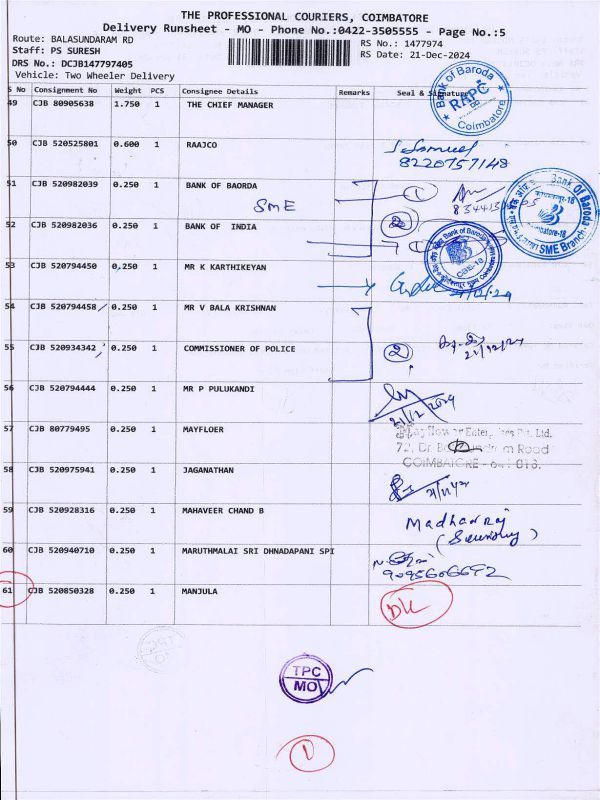 THE PROFESSIONAL COURIERS, COIMBATORE
Delivery Runsheet - MO - Phone No.:0422-3505555 - Page No.:5
Route: BALASUNDARAM RD
RS No.: 1477974
Staff: PS SURESH
RS Date: 21-Dec-2024
DRS No.: DCJB147797405
Vehicle: Two Wheeler Delivery
S No Consignment No Weight PCS Consignee Details Remarks Seal & Signature
49 CJB 80905638 1.750 1 THE CHIEF MANAGER
Bank of Baroda
RAPC
Coimbatore
50 CJB 520525801 0.600 1 RAAJCO
8220757148
51 CJB 520982039 0.250 1 BANK OF BAORDA
SME
1
2
Bank Of Baroda
SME Branch
52 CJB 520982036 0.250 1 BANK OF INDIA
Bank of Baroda
53 CJB 520794450 0.250 1 MR K KARTHIKEYAN
21/12/24
54 CJB 520794458 0.250 1 MR V BALA KRISHNAN
55 CJB 520934342 0.250 1 COMMISSIONER OF POLICE
2
21/12/24
56 CJB 520794444 0.250 1 MR P PULUKANDI
21/12/2024
57 CJB 80779495 0.250 1 MAYFLOER
Mayflower Enterprises Pvt. Ltd.
72, Dr. Road
COIMBATORE - 641 018.
58 CJB 520975941 0.250 1 JAGANATHAN
59 CJB 520928316 0.250 1 MAHAVEER CHAND B
Madhavraj
60 CJB 520940710 0.250 1 MARUTHMALAI SRI DHNADAPANI SPI
9095606692
61 CJB 520850328 0.250 1 MANJULA
DK
TPC
MO
1